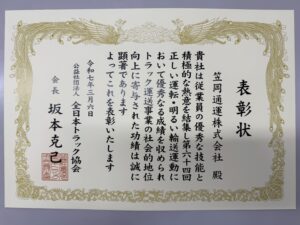 表彰状
笠岡通運株式会社 殿
貴社は従業員の優秀な技能と
積極的な熱意を結集し第六十四回
正しい運転・明るい輸送運動に
おいて優秀なる成績を収められ
トラック運送事業の社会的地位
向上に寄与された功績は誠に
顕著であります
よってこれを表彰いたします
令和七年三月六日
公益社団法人 全日本トラック協会
会長 坂本克己